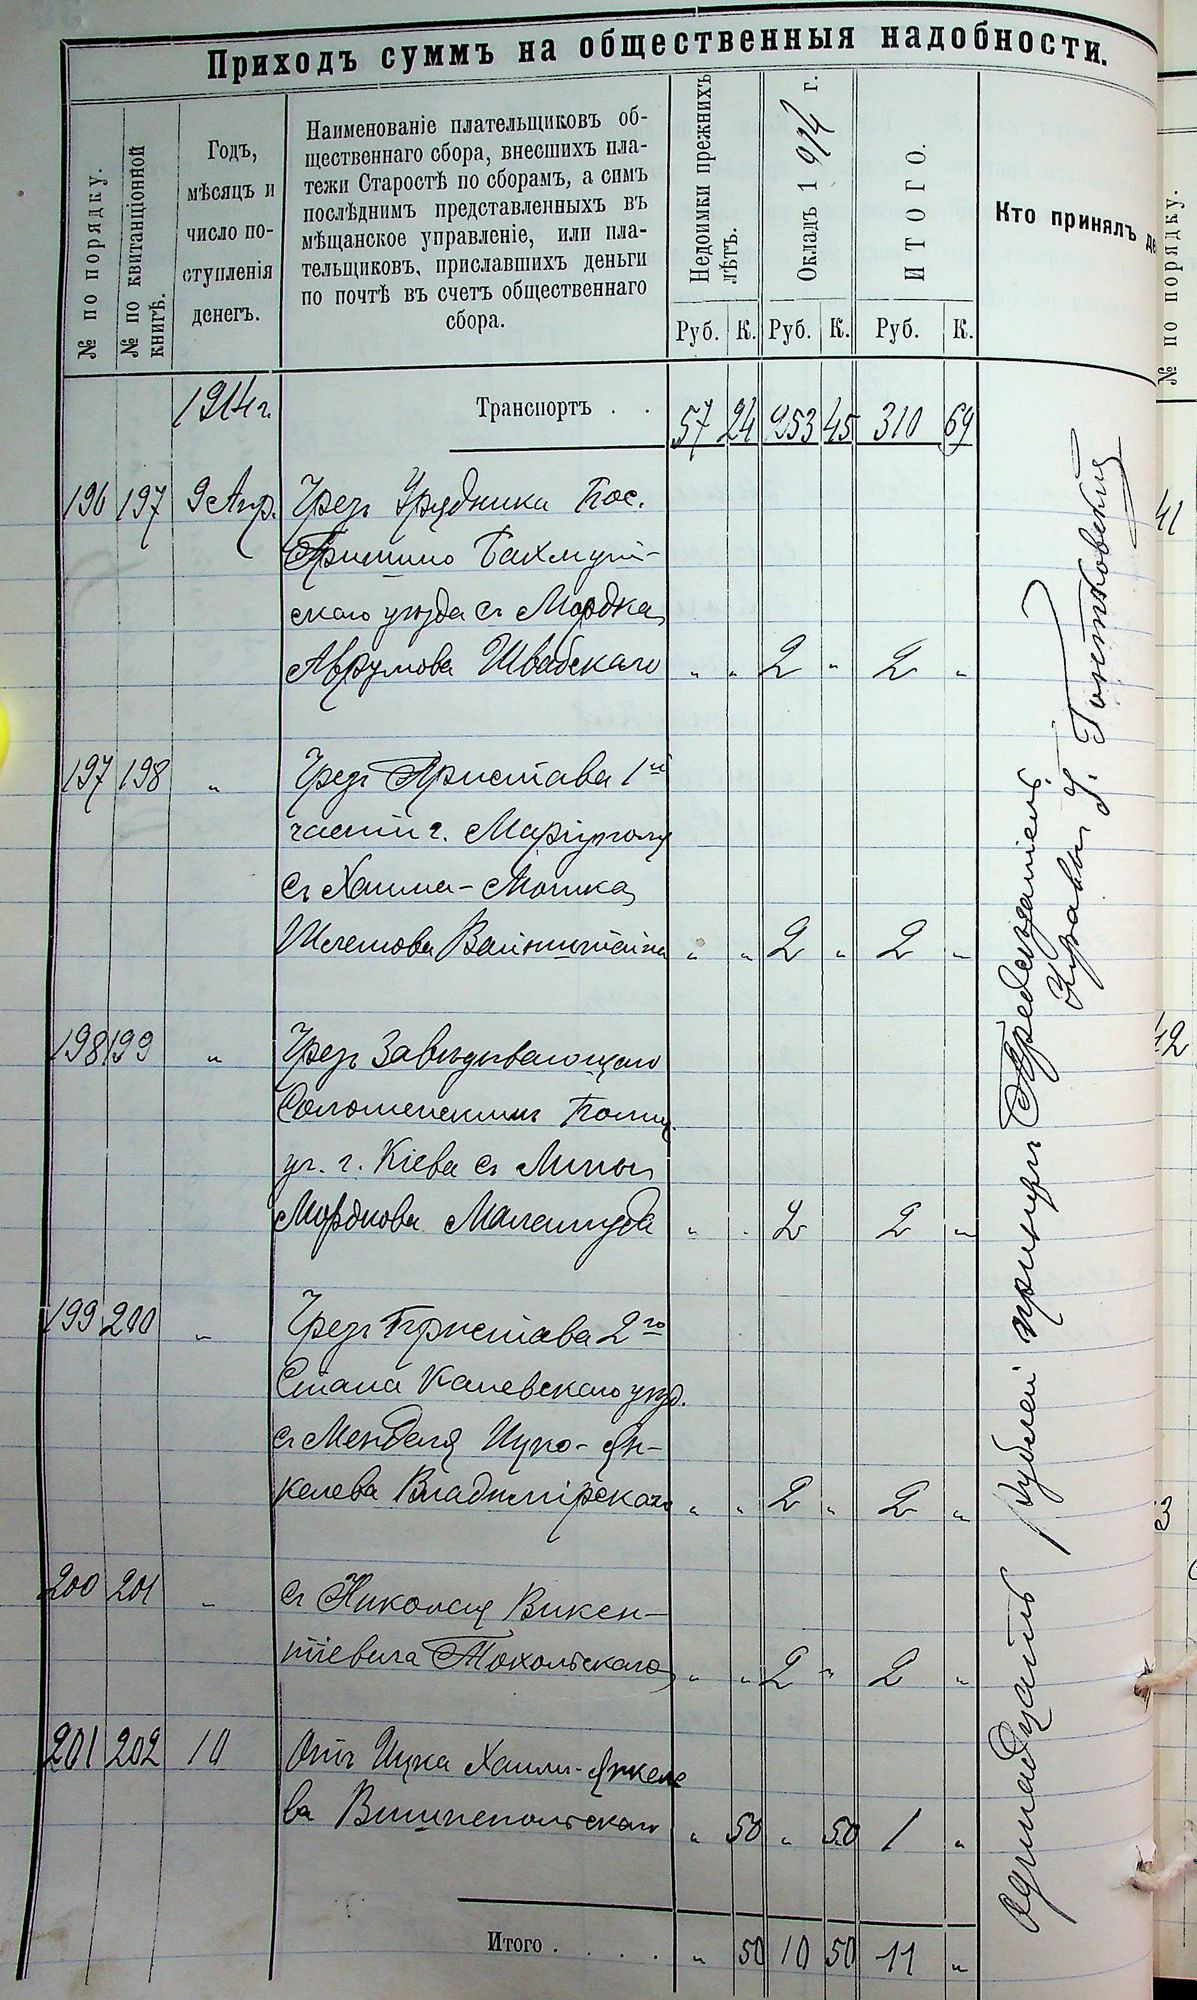 Приходъ суммъ на общественныя надобности.
№ по порядку.
№ по квитанціонной
книгѣ.
Годъ,
мѣсяцъ и
число по-
ступленія
денегъ.
Наименованіе плательщиковъ об-
щественнаго сбора, внесшихъ пла-
тежи Старостѣ по сборамъ, а симъ
послѣднимъ представленныхъ въ
мѣщанское управленіе, или пла-
тельщиковъ, приславшихъ деньги
по почтѣ въ счетъ общественнаго
сбора.
Недоимки прежнихъ
лѣтъ.
Окладъ 1914 г.
ИТОГО.
Кто принялъ де
Руб. К. Руб. К. Руб. К.
1914 г. Транспортъ . . 57 24 253 45 310 69
196 197 9 Апр. Чрез Урядника Пос.
Пришино Бахмут-
скаго уѣзда съ Мордка
Аврумова Швабскаго " " 2 " 2 "
197 198 " Чрез Пристава 1й
части г. Маріуполя
съ Хаима-Мошка
Шлемова Вайнштейна " " 2 " 2 "
198 199 " Чрез Завѣдывающаго
Соломенскимъ Полиц.
уч. г. Кіева съ
Мордкова " . 2 2 "
199 200 " Чрез Пристава 2го
Стана Каневскаго уѣзд.
съ Менделя Ицко-Ян-
келева Владимірскаго " " 2 " 2 "
200 201 " съ Николая Викен-
тіевича Токольскаго " " 2 " 2 "
201 202 10 Отъ Ицка Хаим-Янкеле
ва Вишнепольскаго " 50 " 50 1 "
Итого . . . . " 50 10 50 11 "
одинадцать рублей принялъ Предсѣдатель
Управы Гонтковский
№ по порядку.
41
42